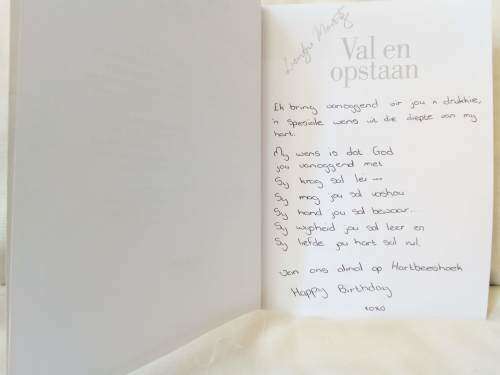 Val en
opstaan
Ek bring vanoggend vir jou 'n drukkie,
'n spesiale wens uit die diepte van my
hart.
My wens is dat God
jou vanoggend met
Sy krag sal lei
Sy mag jou sal
Sy hand jou sal bewaar...
Sy wysheid jou sal leer en
Sy liefde jou hart sal vul.
van ons almal op Hartbeeshoek
Happy Birthday
xoxo